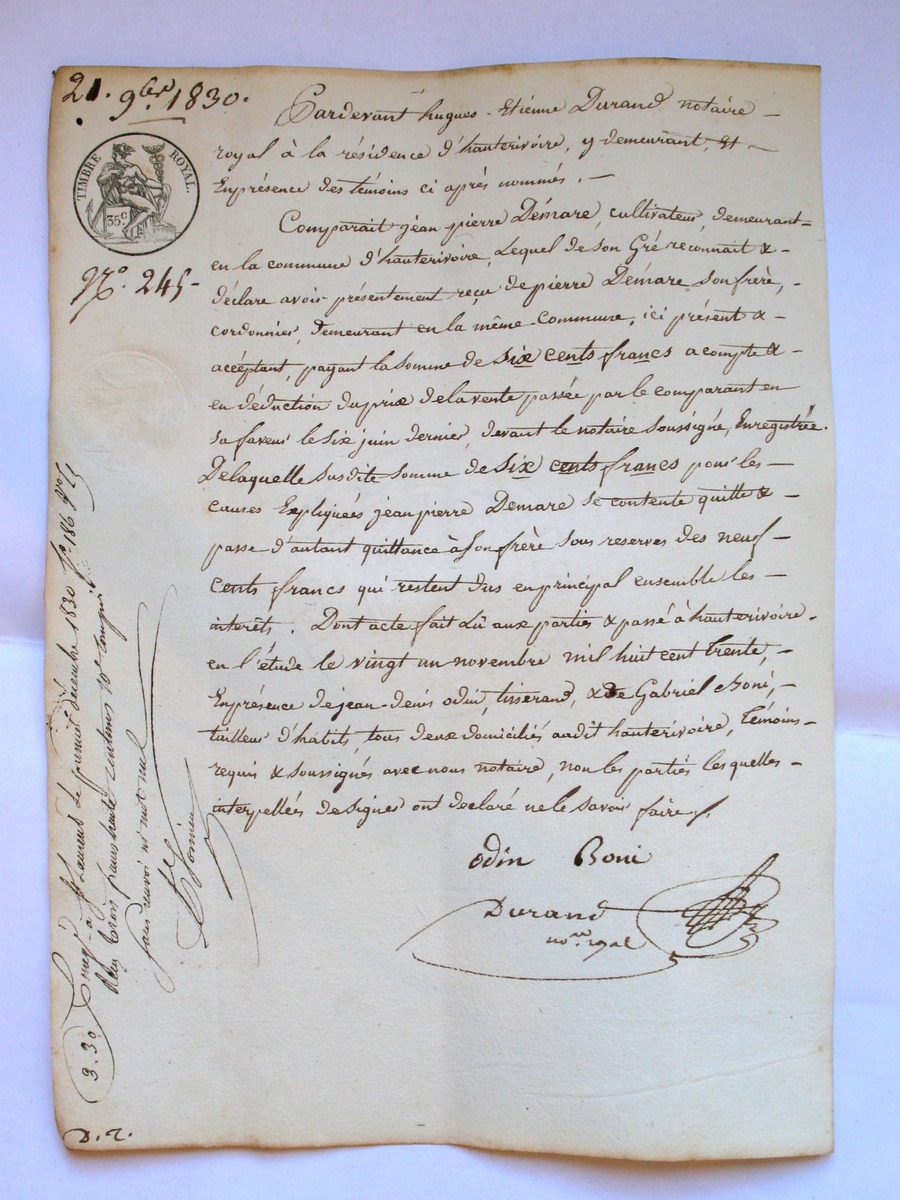 21. 9bre 1830.
TIMBRE ROYAL.
35c
No. 245 -
Pardevant hugues - Etiénne Durand notaire -
royal à la résidence d'hauterivoire, y demeurant, Et -
Enprésence des témoins ci aprés nommés. -
Comparait jéan pierre Démare, cultivateur, demeurant -
en la commune d'hauterivoire, Lequel de son Gré reconnait & -
déclare avoir présentement reçu de pierre Démare son frère, -
cordonnier, demeurant en la même Commune, ici présent & -
accéptant, payant la somme de six cents francs a compte & -
en déduction du prix de la vente passée par le comparant en
sa faveur le six juin dernier, devant le notaire soussigné, Enregistrée.
De laquelle susdite somme de six cents francs pour les -
causes Expliquées jéan pierre Demare se contente quitte & -
passe d'autant quittance à son frère sous reserves des neuf -
cents francs qui restent dus en principal ensemble les -
interêts. Dont acte fait Lû aux parties & passé à hauterivoire -
en l'étude le vingt un novembre mil huit cent trente, -
Enprésence de jean-denis odin, tisserand, & de Gabriel Boni, -
tailleur d'habits, tous deux domiciliés audit hauterivoire, témoins -
requis & soussignés avec nous notaire, non les parties lesquelles -
interpellées de signer ont déclaré ne le savoir faire ./.
odin Boni
Durand
nore royal
St Laurent le premier décembre 1830 fo. 186
Reçu trois francs trente centimes 10e compris
sans renvoi ni mot nul
3.30
D. r.